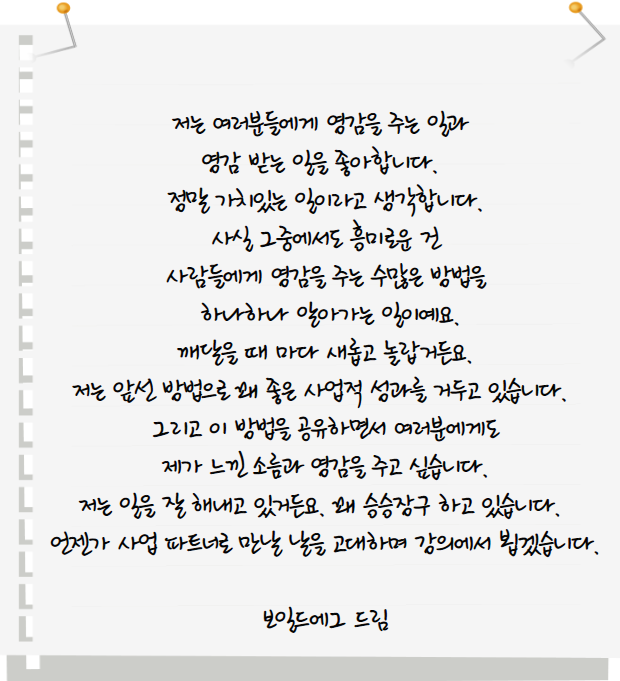 저는 여러분들에게 영감을 주는 일과
영감 받는 일을 좋아합니다.
정말 가치있는 일이라고 생각합니다.
사실 그중에서도 흥미로운 건
사람들에게 영감을 주는 수많은 방법을
하나하나 알아가는 일이예요.
깨달을 때 마다 새롭고 놀랍거든요.
저는 앞선 방법으로 꽤 좋은 사업적 성과를 거두고 있습니다.
그리고 이 방법을 공유하면서 여러분에게도
제가 느낀 소름과 영감을 주고 싶습니다.
저는 일을 잘 해내고 있거든요. 꽤 승승장구 하고 있습니다.
언젠가 사업 파트너로 만날 날을 고대하며 강의에서 뵙겠습니다.
보일드에그 드림